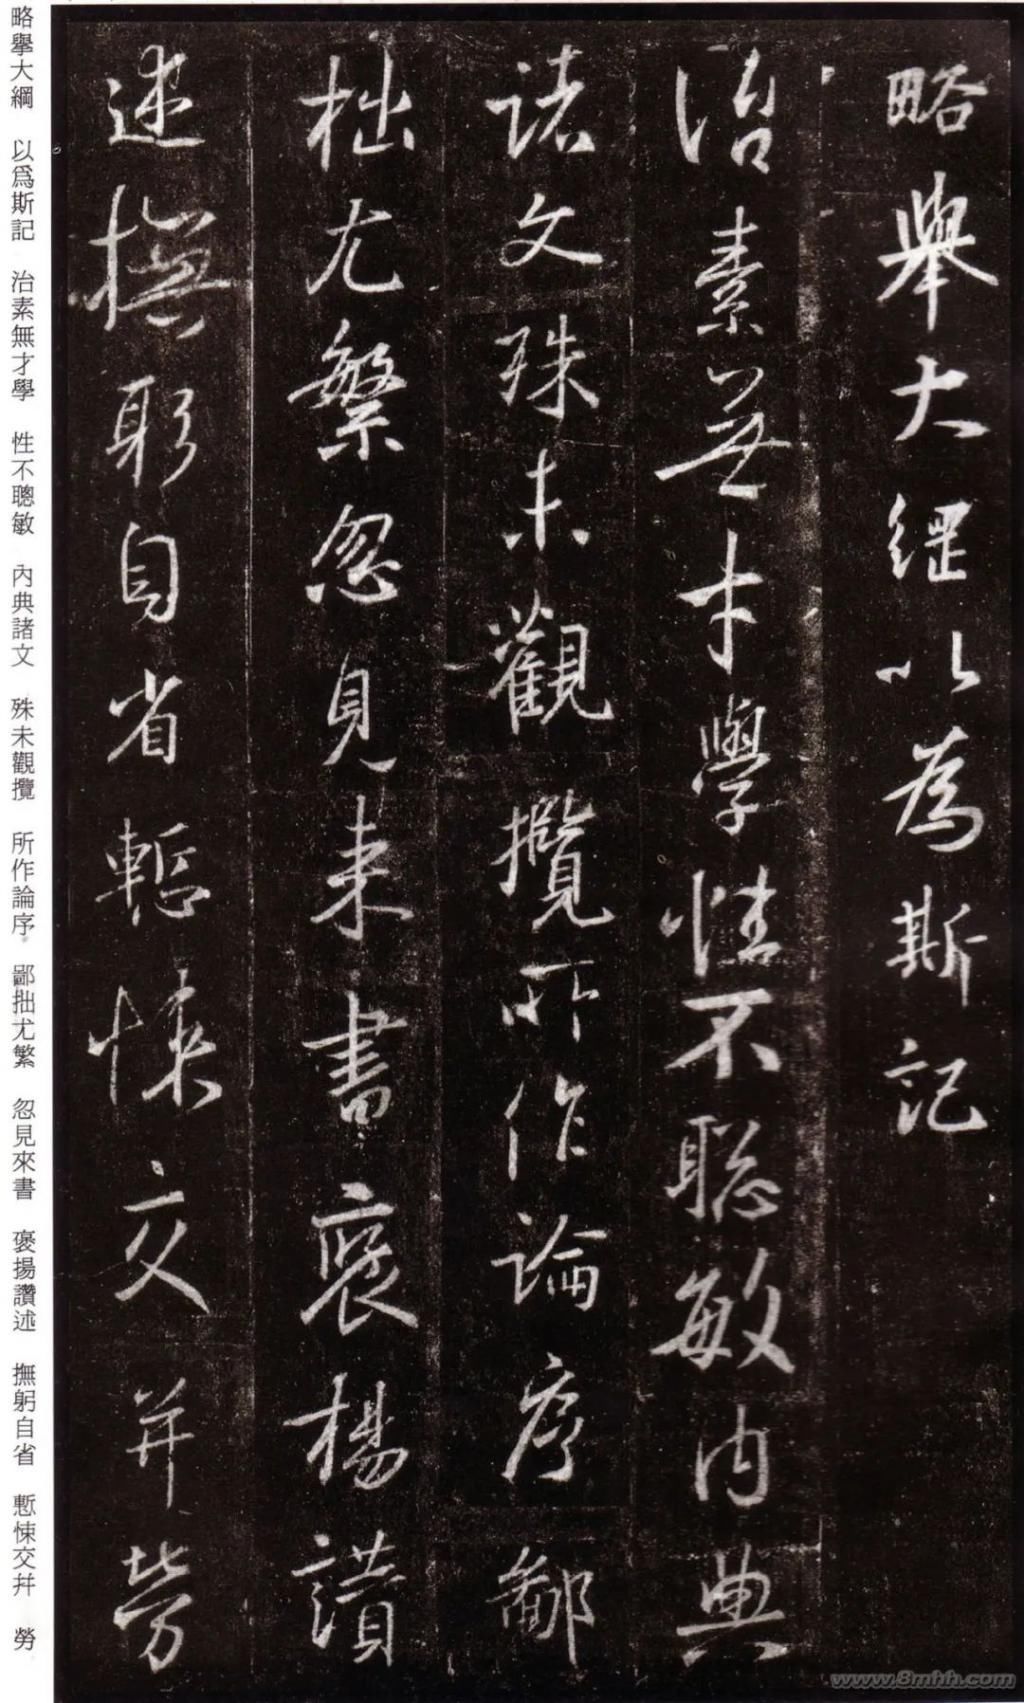 略舉大綱以為斯記
治素無才學性不聰敏內典
諸文殊未觀攬所作論序鄙
拙尤繁忽見來書褒揚讚
述撫躬自省慙悚交并勞
略舉大綱 以爲斯記 治素無才學 性不聰敏 內典諸文 殊未觀攬 所作論序 鄙拙尤繁 忽見來書 褒揚讚述 撫躬自省 慙悚交幷 勞
www.8mhh.com